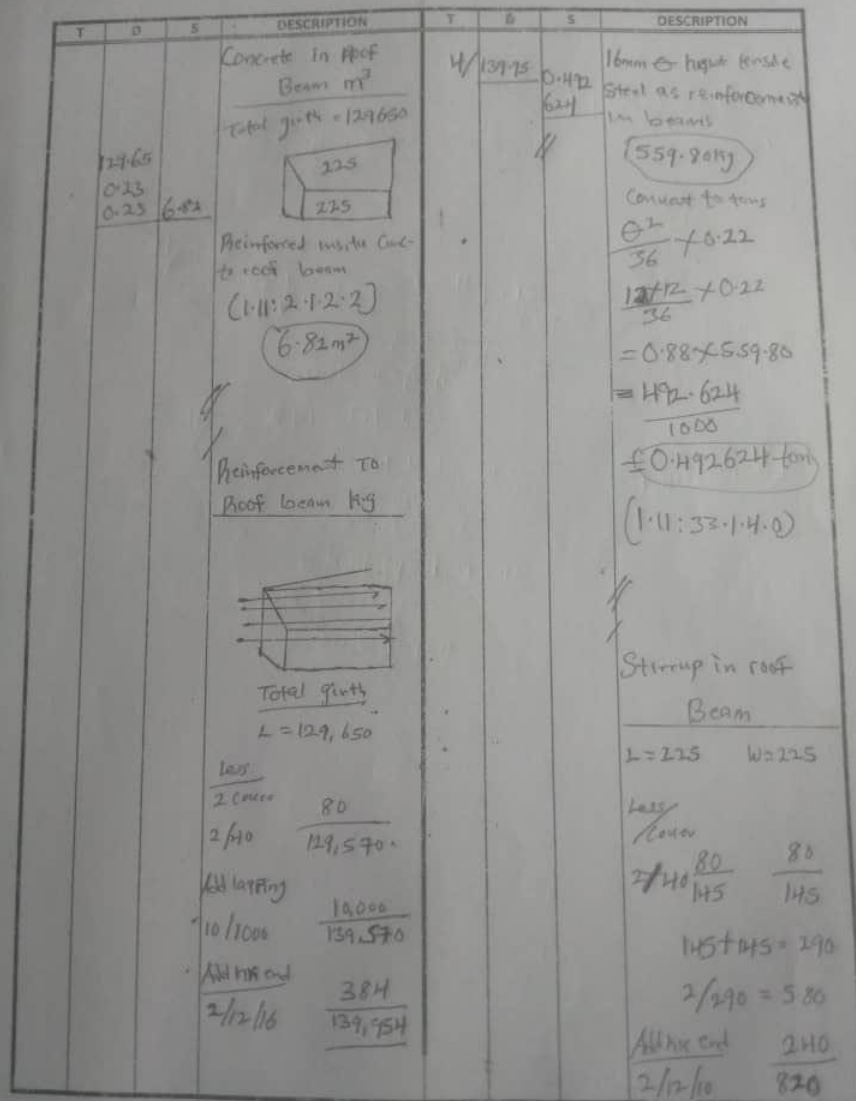 T D S DESCRIPTION
Concrete in Roof
Beam m³
Total girth = 129650
129.65
0.23
0.23 6.82
225
225
Reinforced insitu Conc-
to roof beam
(1.11:2.1.2.2)
6.82m²
Reinforcement To
Roof beam kg
Total girth
L = 129,650
Less
2 Cover 80
2/40 129,570.
Add lapping
10/1000 10,000
139,570
Add end 384
2/12/16 139,954
T D S DESCRIPTION
4/ 139.95 0.492
624
16mm ⌀ tensile
Steel as reinforcement
in beams
559.80Kg
Convert to tons
θ²/36 × 0.22
12×12/36 × 0.22
= 0.88 × 559.80
= 492.624
1000
0.492624 tons
(1.11:33.1.4.0)
Stirrup in roof
Beam
L = 225 W = 225
Less/
Cover
2/40 80 80
145 145
145+145 = 290
2/290 = 580
Add end 240
2/12/10 820